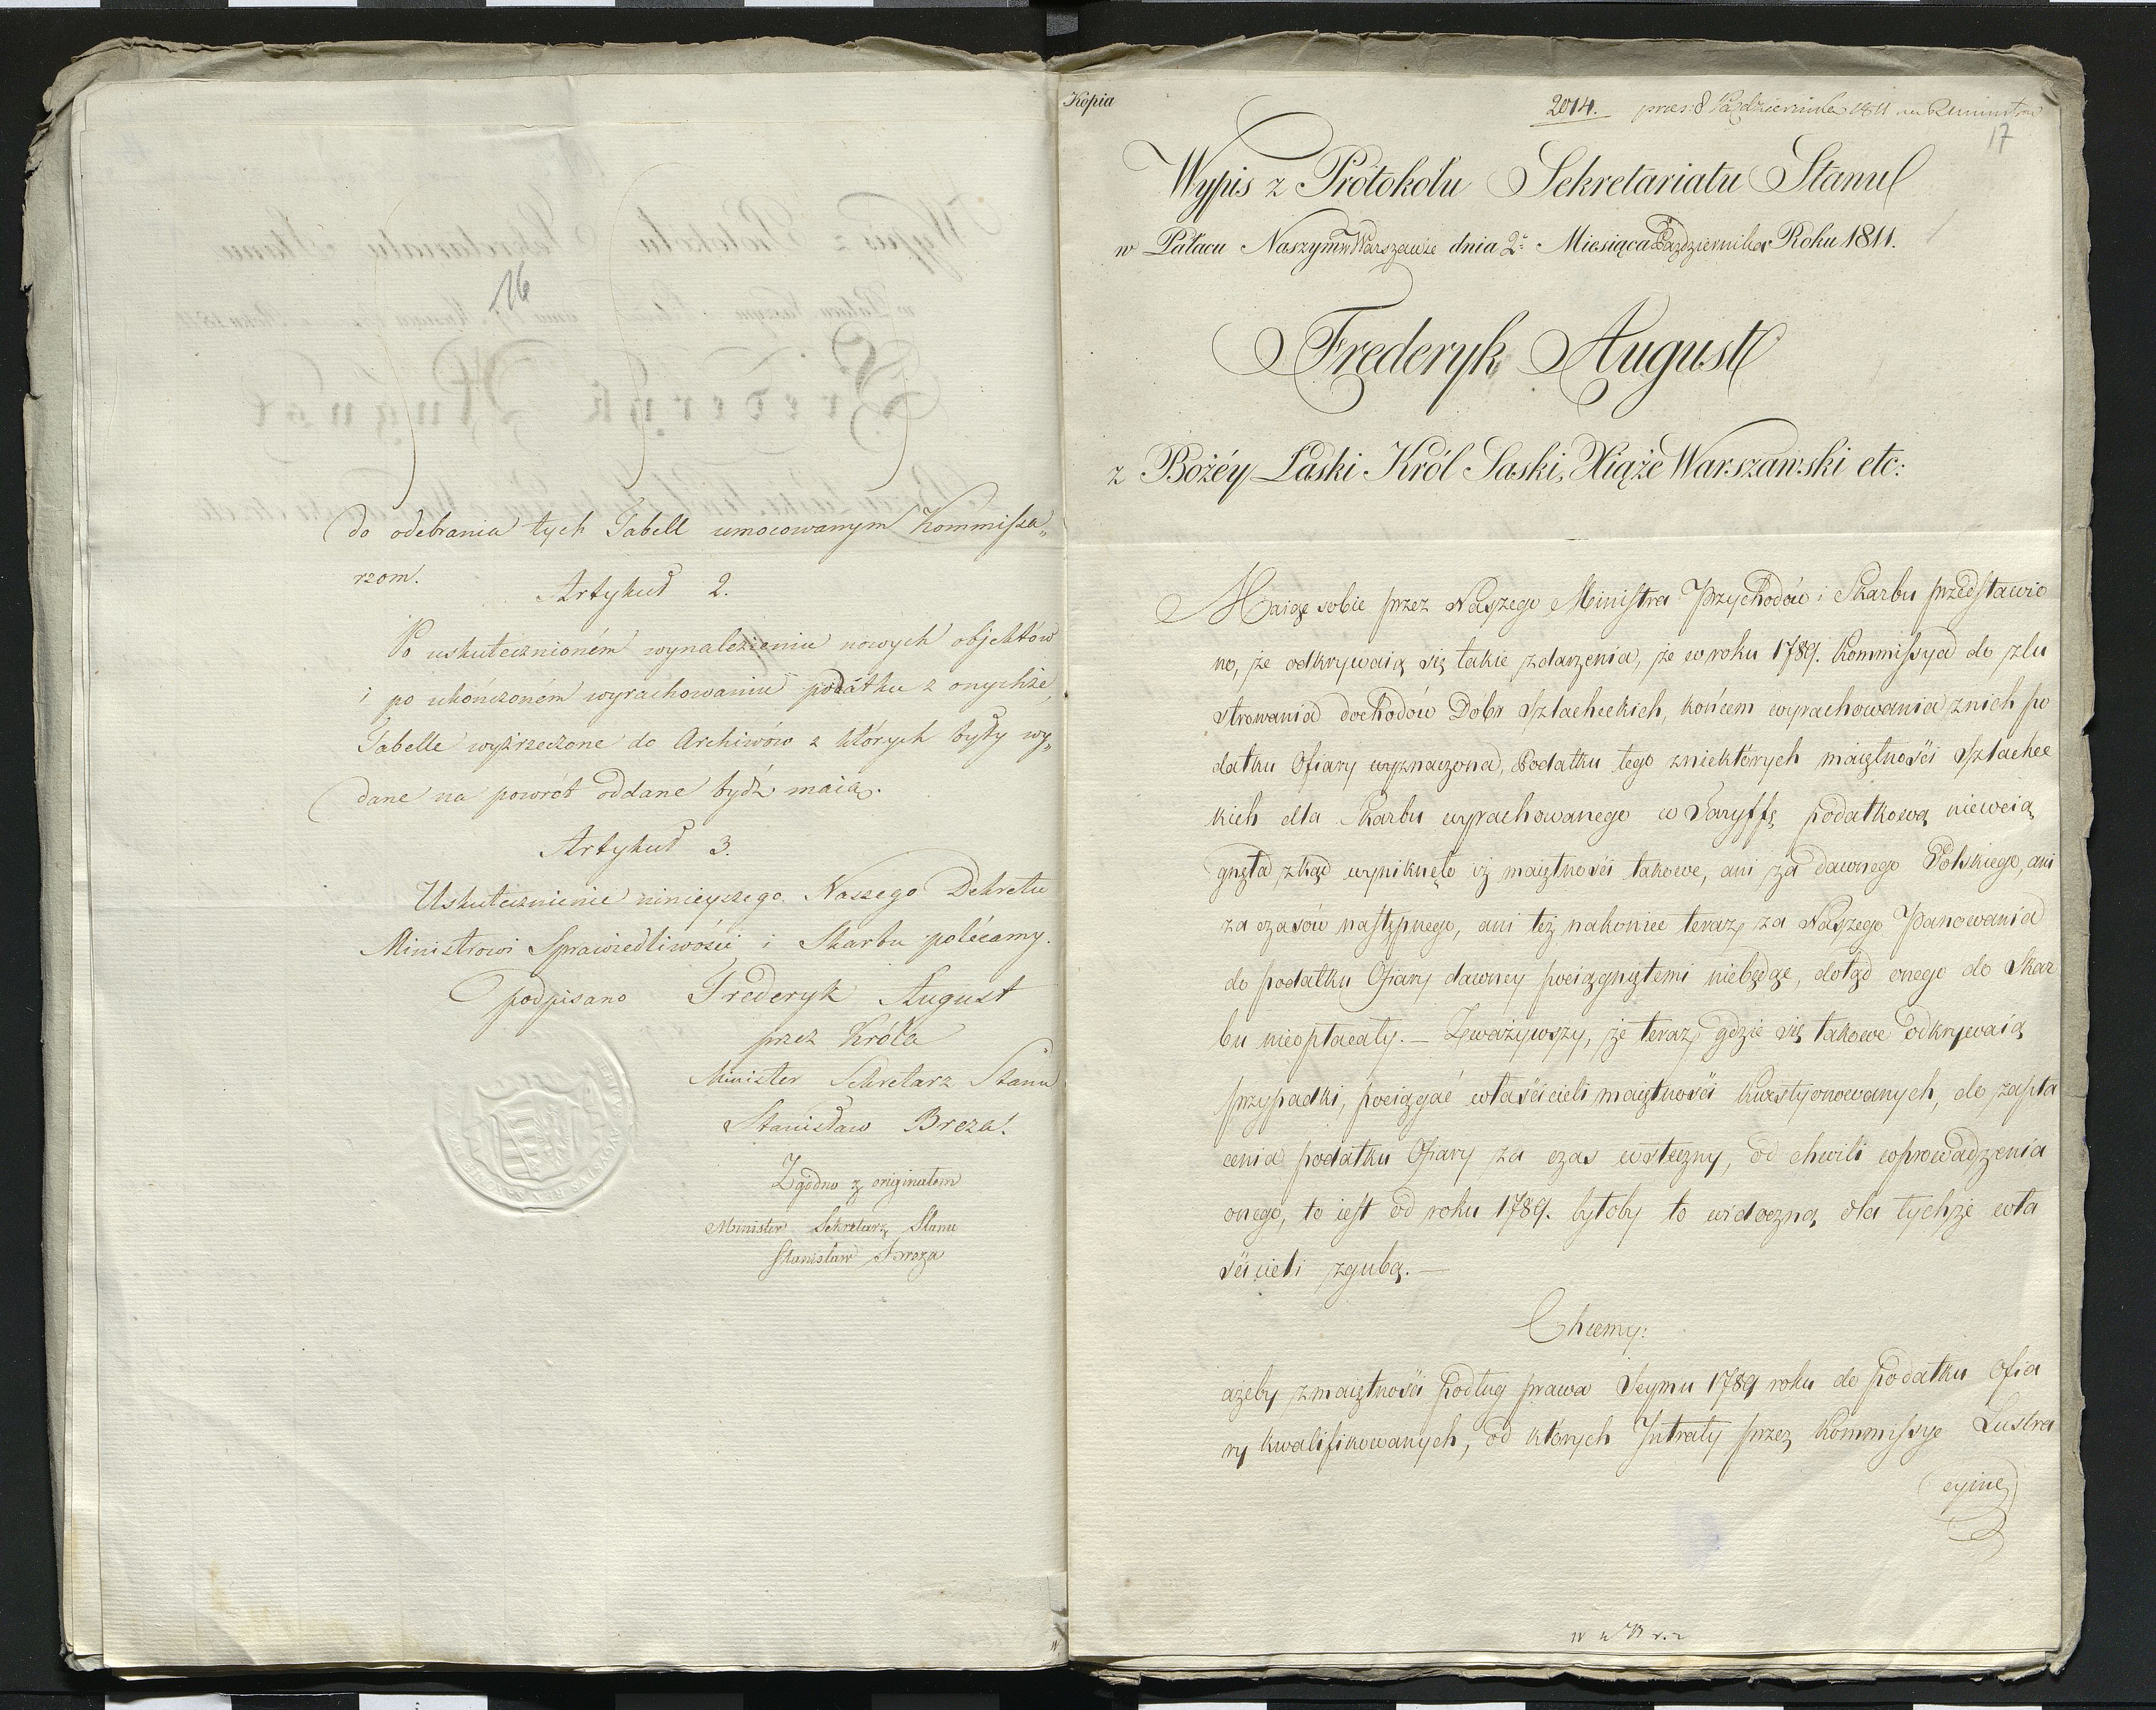 16
do odebrania tych Tabell umocowanym Kommissa„
rzom.
Artykuł 2.
Po uskutecznioném wynalezieniu nowych objektów
i po ukończoném wyrachowaniu podatku z onychże,
Tabelle wyżrzeczone do Archiwów z których były wy„
dane na powrót oddane bydź maią.
Artykuł 3.
Uskutecznienie ninieyszego Naszego Dekretu
Ministrowi Sprawiedliwości i Skarbu polécamy.
podpisano Frederyk August
przez Króla
Minister Sekretarz Stanu
Stanisław Breza.
Zgodno z originałem
Minister Sekretarz Stanu
Stanisław Breza
Kopia
2014. praes: 8 Października 1811
17
Wypis z Protokołu Sekretariatu Stanu
w Pałacu Naszym w Warszawie dnia 2º Miesiąca Października Roku 1811.
Frederyk August
z Bożéy Łaski Król Saski, Xiąże Warszawski etc:
Maiąc sobie przez Naszego Ministra Przychodów i Skarbu przedstawio
no, że odkrywaią się takie zdarzenia, że w roku 1789. Kommissya do zlu
strowania dochodów Dóbr Szlacheckich, końcem wyrachowania z nich po
datku Ofiary wyznaczona, Podatku tego z niektórych maiętności Szlachec
kich dla Skarbu wyrachowanego w Taryffę podatkową niewcią
gnęła, zkąd wyniknęło iż maiętności takowe, ani za dawnego Polskiego, ani
za czasów następnego, ani też nakoniec teraz za Naszego Panowania
do podatku Ofiary dawney pociągniętemi niebędąc, dotąd onego do Skar
bu nieopłacały. — Zważywszy, że teraz gdzie się takowe odkrywaią
przypadki, pociągać właścicieli maiętności kwestyonowanych, do zapła
cenia podatku Ofiary za czas wsteczny, od chwili wprowadzenia
onego, to iest od roku 1789. byłoby to widoczną dla tychże wła
ścicieli zgubą. —
Chcemy:
ażeby z maiętności podług prawa Seymu 1789 roku do Podatku Ofia
ry kwalifikowanych, od których Intraty przez Kommissye Lustra
cyine